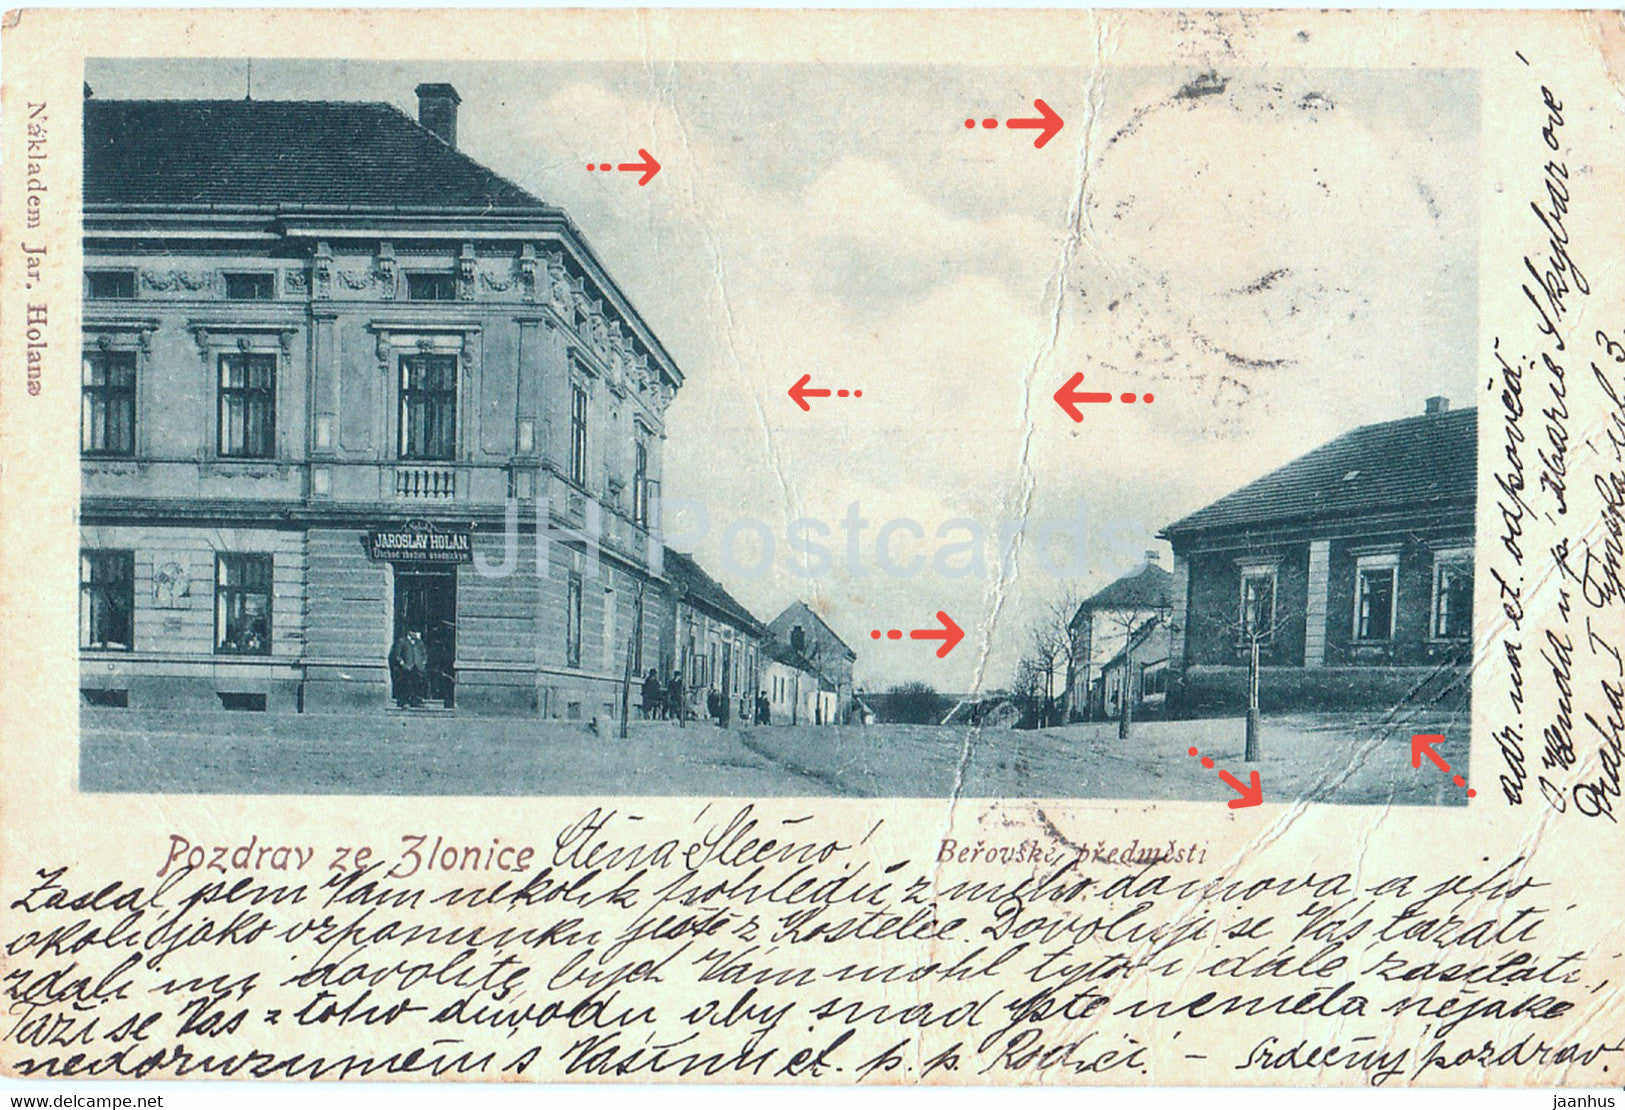 Nákladem Jar. Holana
JAROSLAV HOLAN.
Obchod zbožím osadnickým
JH Postcards
Pozdrav ze Zlonice
Ctěná Slečno!
Beřovské předměstí
Zaslal jsem Vám několik pohledů z mého domova a jeho
okolí jako vzpomínku ještě z Kostelce. Dovoluji se Vás tázati
zdali mi dovolíte bych Vám mohl tyto i dále zasílati,
Táži se Vás z toho důvodu aby snad jste neměla nějaké
nedorozumění s Vašimi ct. p. p. Rodiči. – Srdečný pozdrav!
adr. na ct. odpověď.
O. Benda u p. Marie Skybarové
Praha I Týnská ul. 3
hip.com
jaanhus